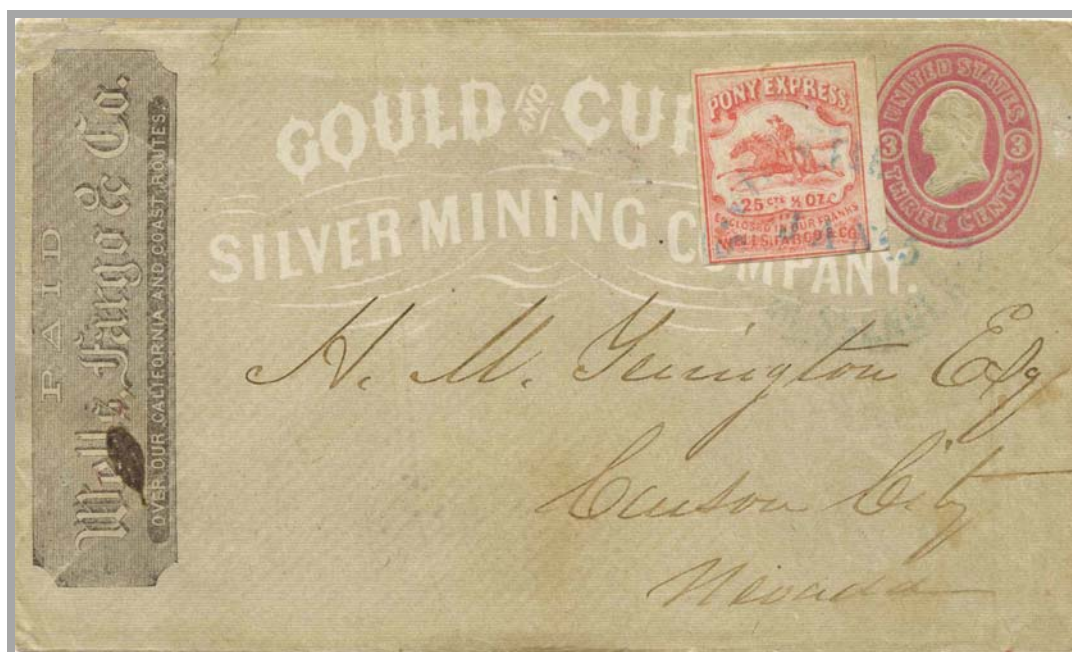 PAID
Wells, Fargo & Co.
OVER OUR CALIFORNIA AND COAST ROUTES.
GOULD AND CUR
SILVER MINING COMPANY.
PONY EXPRESS.
25 CTS ½ OZ.
ENCLOSED IN OUR FRANKS
WELLS, FARGO & CO.
UNITED STATES
3 3
THREE CENTS
H. M. Yerington Esq
Carson City
Nevada